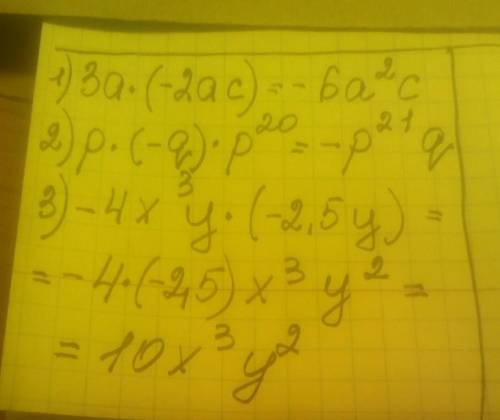 1) 3a·(-2ac)=-6a²c
2) p·(-q)·p²⁰=-p²¹q
3) -4x³y·(-2,5y)=
=-4·(-2,5)x³y²=
=10x³y²